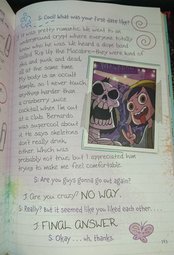 S: Cool! What was your first date like?
was pretty romantic. We went to an
underground crypt where everyone totally
knew who he was. We heard a dope band
called Ray of the Macabre—they were kind of
ska and punk and dead,
all at the same time.
My body is an occult
temple, so I never touch
anything harder than
a cranberry juice
cocktail when I'm out
at a club. Bernardo
was supercool about
it. He says skeletons
don't really drink,
either. Which was
probably not true, but I appreciated him
trying to make me feel comfortable.
S: Are you guys gonna go out again?
J: Are you crazy? NO WAY.
S: Really? But it seemed like you liked each other. . . .
J: FINAL ANSWER.
S: Okay . . . uh, thanks.